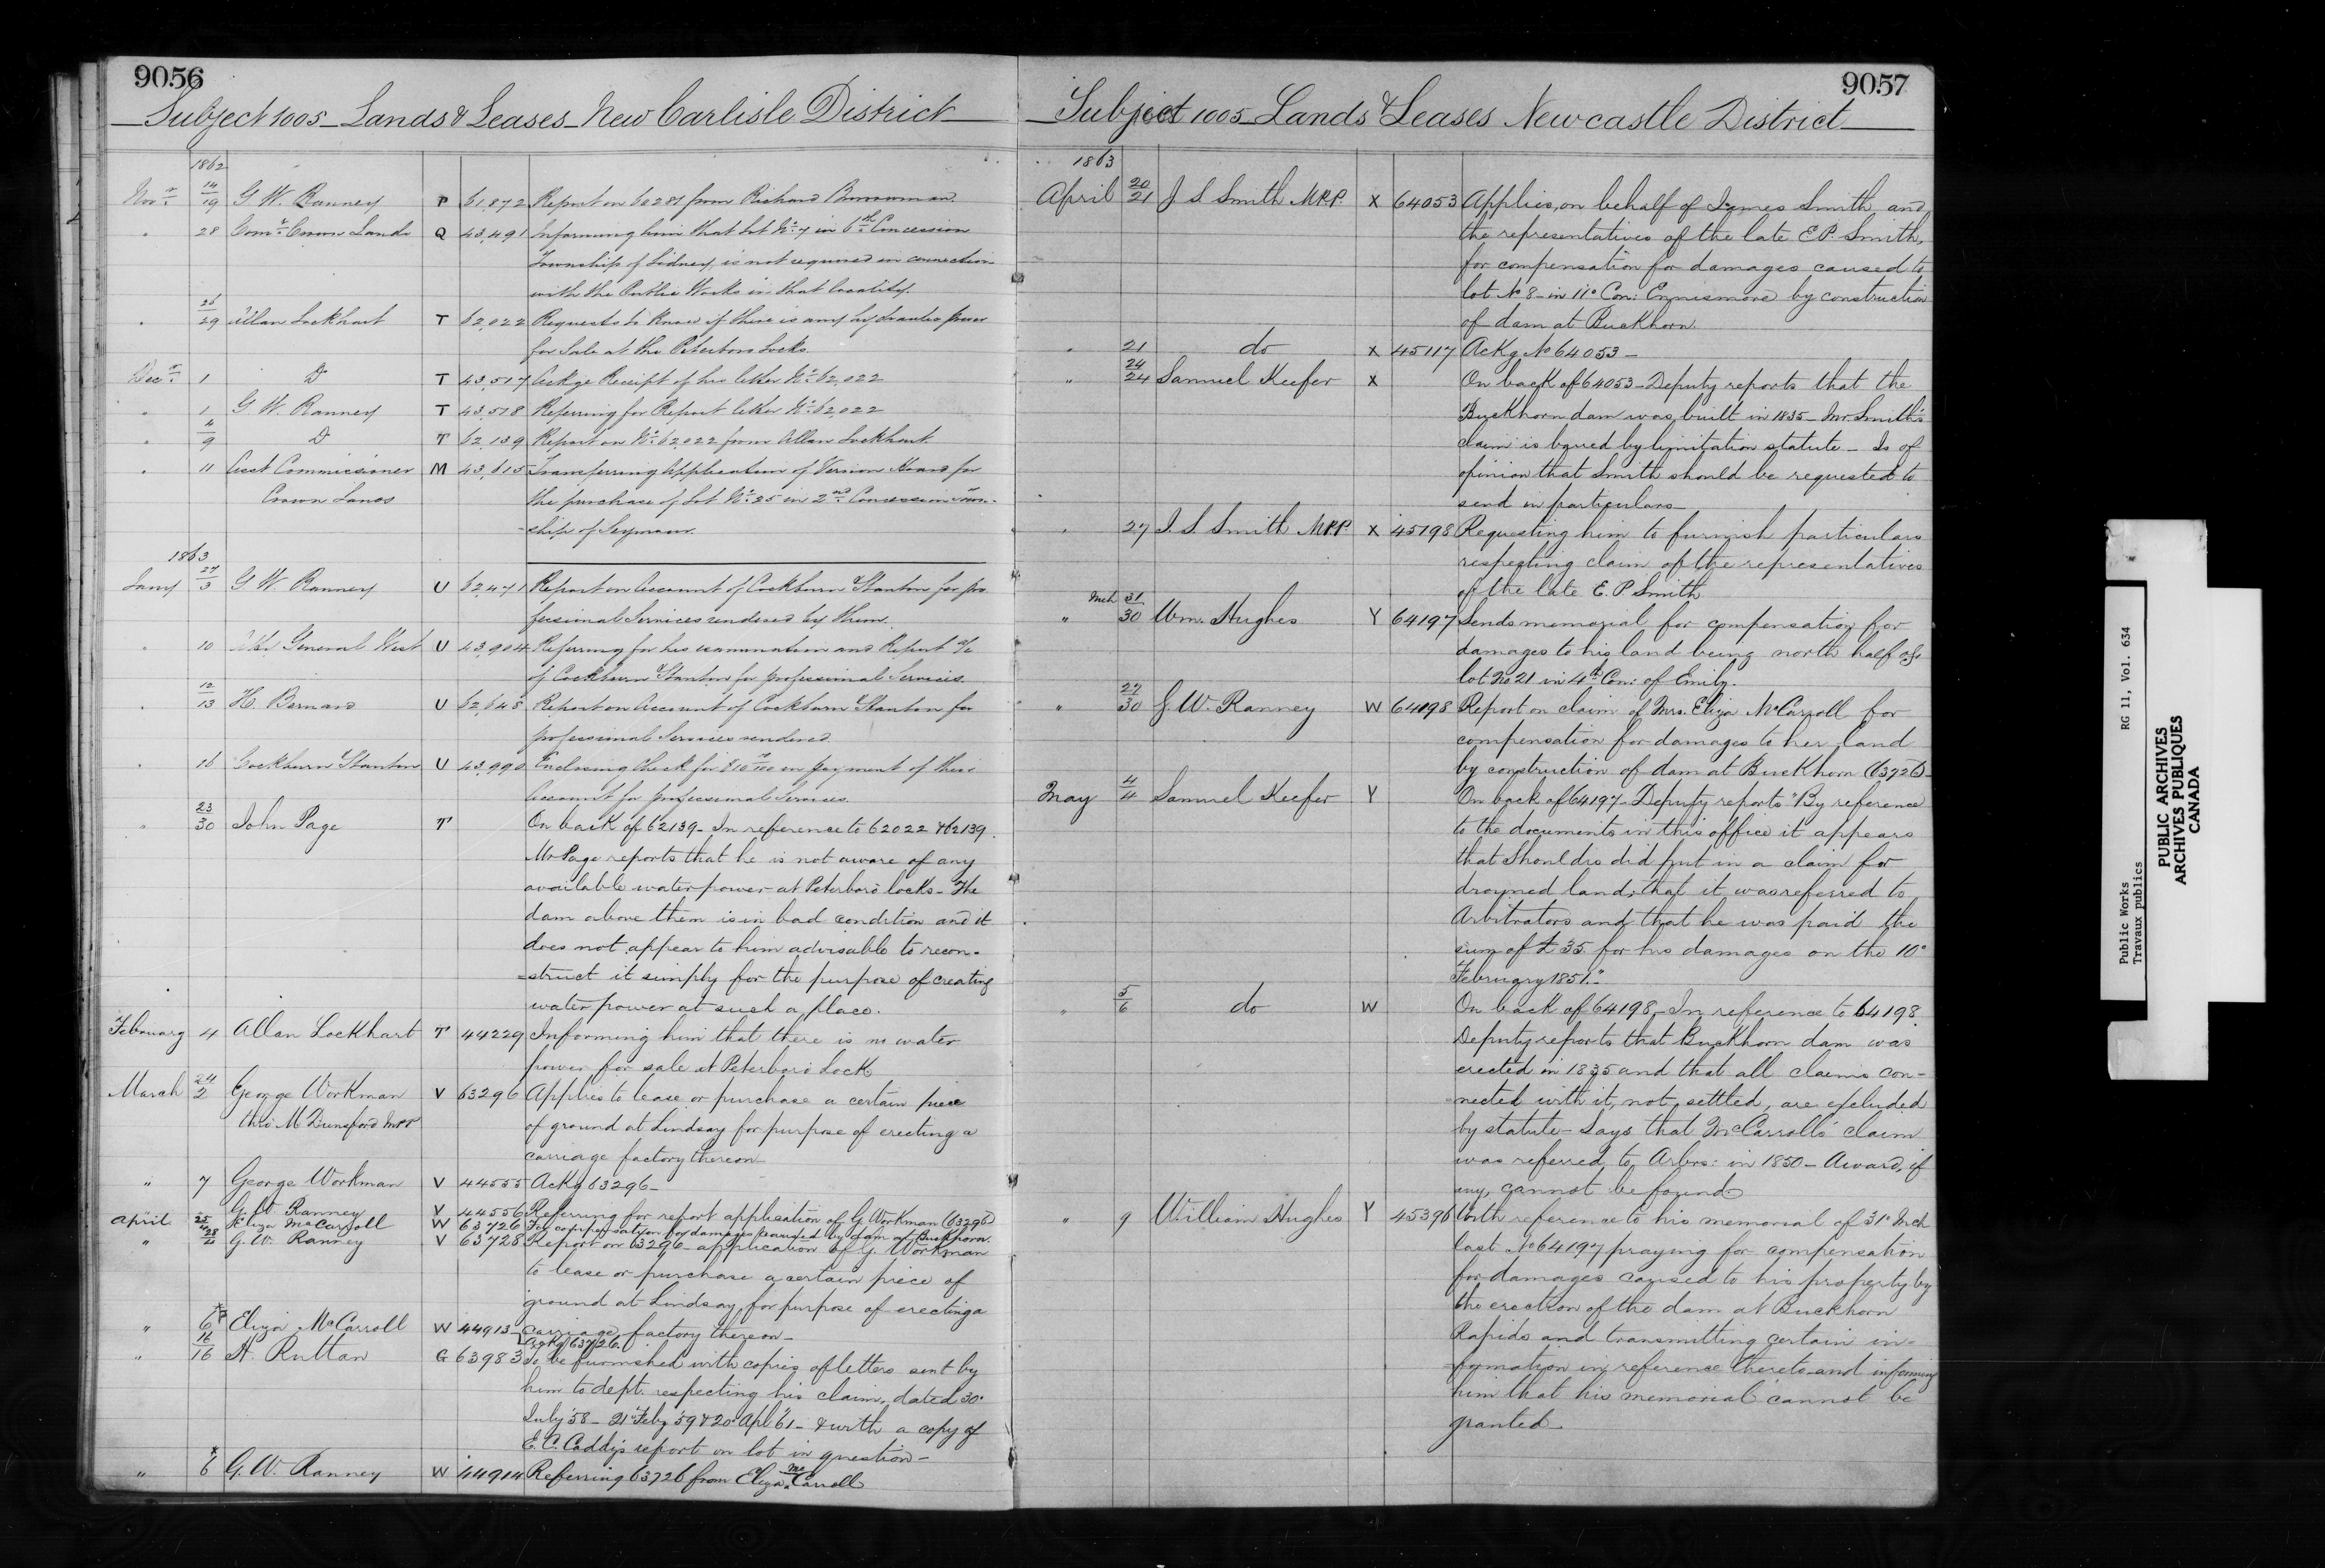 9056
Subject 1005 - Lands & Leases - New Carlisle District
1862
Novr 14/19 G W. Ranney P 61,872 Report on 60281 from Richard
" 28 Comr Crown Lands Q 43,491 Informing him that lot No 7 in 6th Concession
Township of Sidney, is not required in connection
with the Public Works in that locality.
" 26/29 Allan Lockhart T 62,022 Requests to know if there is any hydraulic power
for Sale at the Peterboro Locks.
Decr 1 Do T 43,517 Ackge Receipt of his letter No 62,022
" 1 G W. Ranney T 43,518 Referring for Report letter No 62,022
" 4/9 Do T 62,139 Report on No 62,022 from Allan Lockhart
" 11 Asst Commissioner M 43,615 Transferring Application of Vernon for
Crown Lands the purchase of Lot No 35 in 2nd Concession Town-
-ship of Seymour.
1863
Jany 27/3 G W. Ranney U 62,471 Report on Account of Cockburn & Stanton for pro
fessional Services rendered by them.
" 10 General West U 43,904 Referring for his examination and Report a/c
of Cockburn & Stanton for professional Services.
" 12/13 H. Bernard U 62,648 Report on Account of Cockburn & Stanton for
professional Services rendered.
" 16 Cockburn & Stanton U 43,990 Enclosing Check for in payment of their
Account for professional Services.
" 23/30 John Page T On back of 62139 - In reference to 62022 & 62139.
Mr Page reports that he is not aware of any
available water power at Peterboro' locks - The
dam above them is in bad condition and it
does not appear to him advisable to recon-
=struct it simply for the purpose of creating
water power at such a place.
February 4 Allan Lockhart T 44229 Informing him that there is no water
power for sale at Peterboro' Lock
March 24/2 George Workman V 63296 Applies to lease or purchase a certain piece
thro' M Dunsford MPP of ground at Lindsay for purpose of erecting a
carriage factory thereon
" 7 George Workman V 44555 Ackg 63296 -
G. W. Ranney V 44556 Referring for report application of G. Workman (63296)
April 25/4 Eliza McCarroll W 63726 For compensation for damages caused by dam at Buckhorn.
" 28/2 G. W. Ranney V 63728 Report on 63296 - application of G. Workman
to lease or purchase a certain piece of
ground at Lindsay, for purpose of erecting a
" 6 Eliza McCarroll W 44913 - carriage factory thereon -
Ackg 63726.
" 16/16 H. Ruttan G 63983 To be furnished with copies of letters sent by
him to dept. respecting his claim, dated 30o
July '58 - 21o Feby '59 & 20o Apl '61 - & with a copy of
E. C. Caddy's report on lot in question -
" 6 G. W. Ranney W 44914 Referring 63726 from Eliza McCarroll
9057
Subject 1005 - Lands & Leases Newcastle District
1863
April 20/21 J S Smith M.P.P. X 64053 Applies, on behalf of James Smith and
the representatives of the late E P. Smith,
for compensation for damages caused to
lot No 8 - in 11o Con: Ennismore by construction
of dam at Buckhorn.
" 21 do X 45117 Ackg No 64053 -
" 24/24 Samuel Keefer X On back of 64053 - Deputy reports that the
Buckhorn dam was built in 1835 - Mr. Smith's
claim is barred by limitation statute - Is of
opinion that Smith should be requested to
send in particulars -
" 27 J. S. Smith M.P.P. X 45198 Requesting him to furnish particulars
respecting claim of the representatives
of the late E. P Smith
" Mch 31/30 Wm. Hughes Y 64197 Sends memorial for compensation for
damages to his land being north half of
lot No 21 in 4th Con: of Emily.
" 27/30 G. W. Ranney W 64198 Report on claim of Mrs. Eliza McCarroll for
compensation for damages to her land
by construction of dam at Buckhorn (63726) -
May 4/4 Samuel Keefer Y On back of 64197 - Deputy reports "By reference
to the documents in this office it appears
that Shouldis did put in a claim for
drowned land, that it was referred to
Arbitrators and that he was paid the
sum of £35. for his damages on the 10o
February 1851."
" 5/6 do W On back of 64198 - In reference to 64198
Deputy reports that Buckhorn dam was
erected in 1835 and that all claims con-
=nected with it, not settled, are excluded
by statute - Says that McCarroll's claim
was referred to Arbrs: in 1850 - Award, if
any, cannot be found
" 9 William Hughes Y 45396 With reference to his memorial of 31o Mch
last No 64197 praying for compensation
for damages caused to his property by
the erection of the dam at Buckhorn
Rapids and transmitting certain in-
-formation in reference thereto and informing
him that his memorial cannot be
granted
Public Works RG 11, Vol. 634
Travaux publics
PUBLIC ARCHIVES
ARCHIVES PUBLIQUES
CANADA